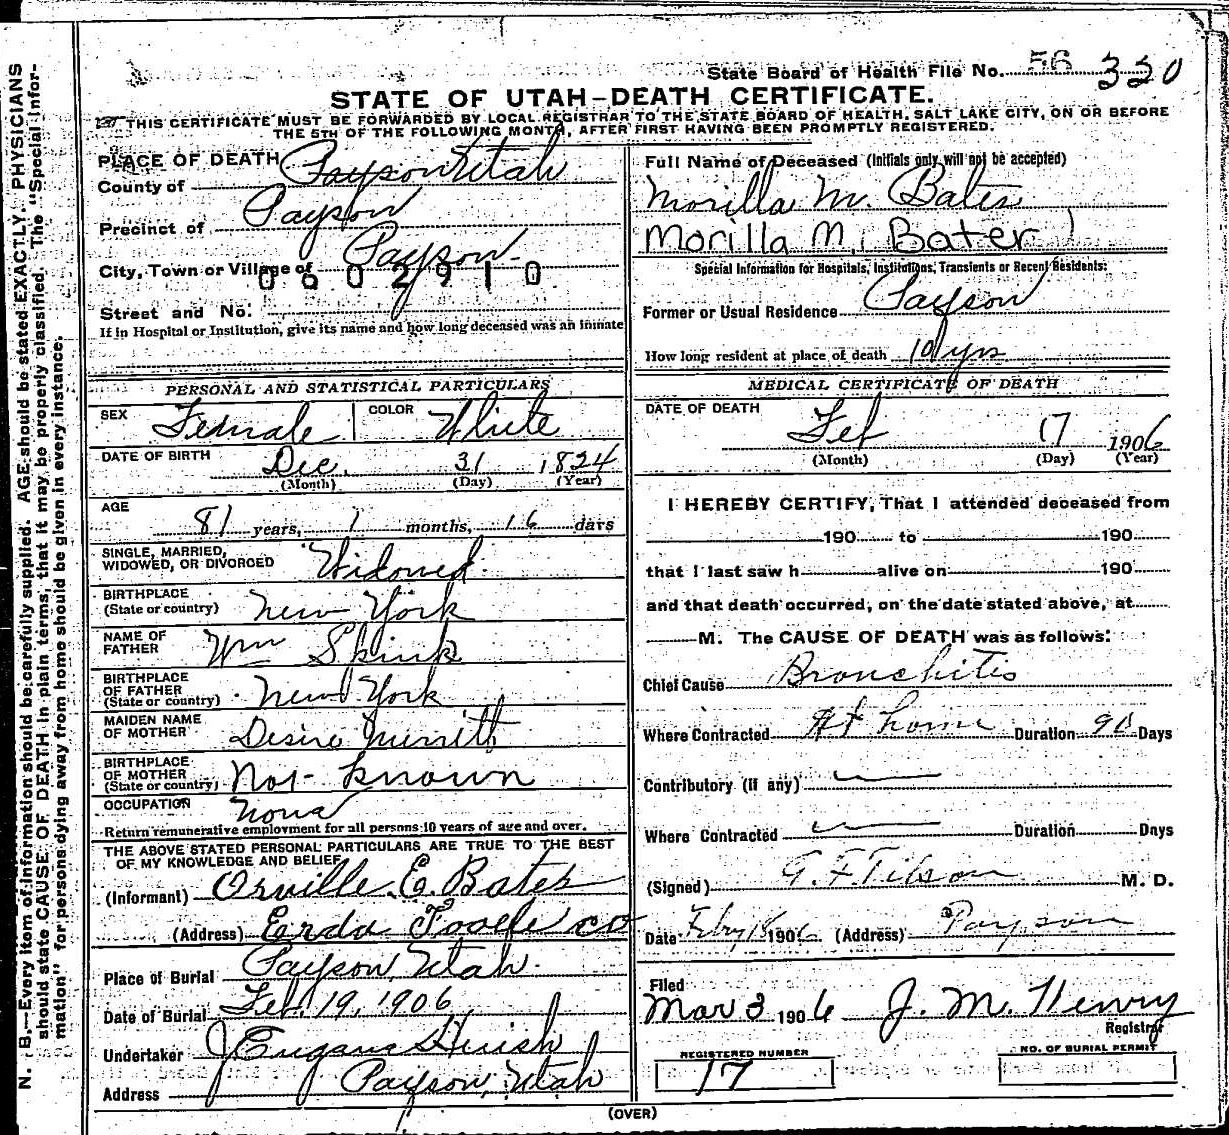 State Board of Health File No. 56 330
STATE OF UTAH—DEATH CERTIFICATE.
THIS CERTIFICATE MUST BE FORWARDED BY LOCAL REGISTRAR TO THE STATE BOARD OF HEALTH, SALT LAKE CITY, ON OR BEFORE
THE 5TH OF THE FOLLOWING MONTH, AFTER FIRST HAVING BEEN PROMPTLY REGISTERED.
PLACE OF DEATH
County of Payson Utah
Precinct of Payson
City, Town or Village of Payson
0602910
Street and No.
If in Hospital or Institution, give its name and how long deceased was an inmate
PERSONAL AND STATISTICAL PARTICULARS
SEX Female COLOR White
DATE OF BIRTH Dec. 31 1824
(Month) (Day) (Year)
AGE
81 years, 1 months, 16 days
SINGLE, MARRIED,
WIDOWED, OR DIVORCED Widowed.
BIRTHPLACE
(State or country) New York
NAME OF
FATHER Wm Skink
BIRTHPLACE
OF FATHER
(State or country) New York
MAIDEN NAME
OF MOTHER Desire Merritt
BIRTHPLACE
OF MOTHER
(State or country) Not known
OCCUPATION None
Return remunerative employment for all persons 10 years of age and over.
THE ABOVE STATED PERSONAL PARTICULARS ARE TRUE TO THE BEST
OF MY KNOWLEDGE AND BELIEF
(Informant) Orville E. Bates
(Address) Erda Tooele co
Place of Burial Payson, Utah.
Date of Burial Feb. 19, 1906
Undertaker J Eugane Huish
Address Payson, Utah
Full Name of Deceased (Initials only will not be accepted)
Morilla M. Bates
Morilla M. Bater
Special Information for Hospitals, Institutions, Transients or Recent Residents:
Former or Usual Residence Payson
How long resident at place of death 10 yrs
MEDICAL CERTIFICATE OF DEATH
DATE OF DEATH
Feb 17 1906
(Month) (Day) (Year)
I HEREBY CERTIFY, That I attended deceased from
190 to 190
that I last saw h alive on 190
and that death occurred, on the date stated above, at
M. The CAUSE OF DEATH was as follows:
Chief Cause Bronchitis
Where Contracted At home Duration 90 Days
Contributory (if any)
Where Contracted Duration Days
(Signed) G. F. Tilson M. D.
Date Feby 18 1906 (Address) Payson
Filed
Mar 3 1906 J. M. Henry
Registrar
REGISTERED NUMBER
17
NO. OF BURIAL PERMIT
(OVER)
N. B.—Every item of information should be carefully supplied. AGE should be stated EXACTLY. PHYSICIANS
should state CAUSE OF DEATH in plain terms, that it may be properly classified. The "Special Infor-
mation" for persons dying away from home should be given in every instance.